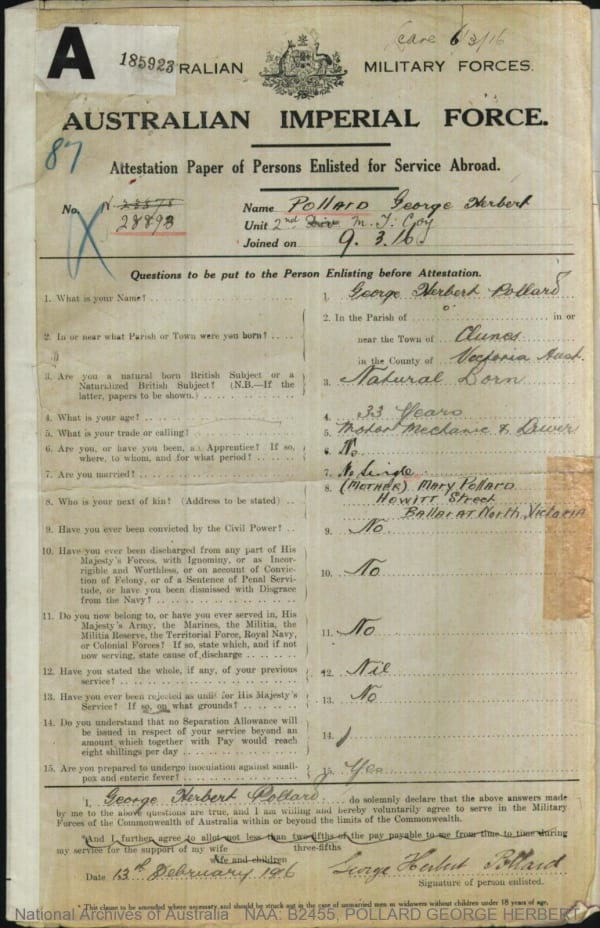 Care 6/3/16
A
185923
RALIAN MILITARY FORCES.
AUSTRALIAN IMPERIAL FORCE.
87
Attestation Paper of Persons Enlisted for Service Abroad.
No. N 23878
28893
X
Name Pollard George Herbert
Unit 2nd Div M. T. Coy
Joined on 9. 3. 16.
Questions to be put to the Person Enlisting before Attestation.
1. What is your Name? 1. George Herbert Pollard
2. In or near what Parish or Town were you born? 2. In the Parish of in or
near the Town of Clunes
in the County of Victoria Aust.
3. Are you a natural born British Subject or a
Naturalized British Subject? (N.B.—If the 3. Natural Born
latter, papers to be shown.)
4. What is your age? 4. 33 Years
5. What is your trade or calling? 5. Motor Mechanic & Driver
6. Are you, or have you been, an Apprentice? If so, 6. No
where, to whom, and for what period?
7. Are you married? 7. No Single
8. Who is your next of kin? (Address to be stated) 8. (MOTHER) MARY POLLARD
HOWITT STREET
BALLARAT NORTH, VICTORIA
9. Have you ever been convicted by the Civil Power? 9. No
10. Have you ever been discharged from any part of His
Majesty's Forces, with Ignominy, or as Incor-
rigible and Worthless, or on account of Convic-
tion of Felony, or of a Sentence of Penal Servi- 10. No
tude, or have you been dismissed with Disgrace
from the Navy?
11. Do you now belong to, or have you ever served in, His
Majesty's Army, the Marines, the Militia, the
Militia Reserve, the Territorial Force, Royal Navy, 11. No
or Colonial Forces? If so, state which, and if not
now serving, state cause of discharge
12. Have you stated the whole, if any, of your previous 12. Nil
service?
13. Have you ever been rejected as unfit for His Majesty's 13. No
Service? If so, on what grounds?
14. Do you understand that no Separation Allowance will
be issued in respect of your service beyond an 14.
amount which together with Pay would reach
eight shillings per day
15. Are you prepared to undergo inoculation against small- 15. Yes
pox and enteric fever?
I, George Herbert Pollard do solemnly declare that the above answers made
by me to the above questions are true, and I am willing and hereby voluntarily agree to serve in the Military
Forces of the Commonwealth of Australia within or beyond the limits of the Commonwealth.
*And I further agree to allot not less than two-fifths of the pay payable to me from time to time during
three-fifths
my service for the support of my wife
wife and children
Date 13th February 1916 George Herbert Pollard
Signature of person enlisted.
* This clause to be amended where necessary, and should be struck out in the case of unmarried men or widowers without children under 18 years of age.
National Archives of Australia NAA: B2455, POLLARD GEORGE HERBERT